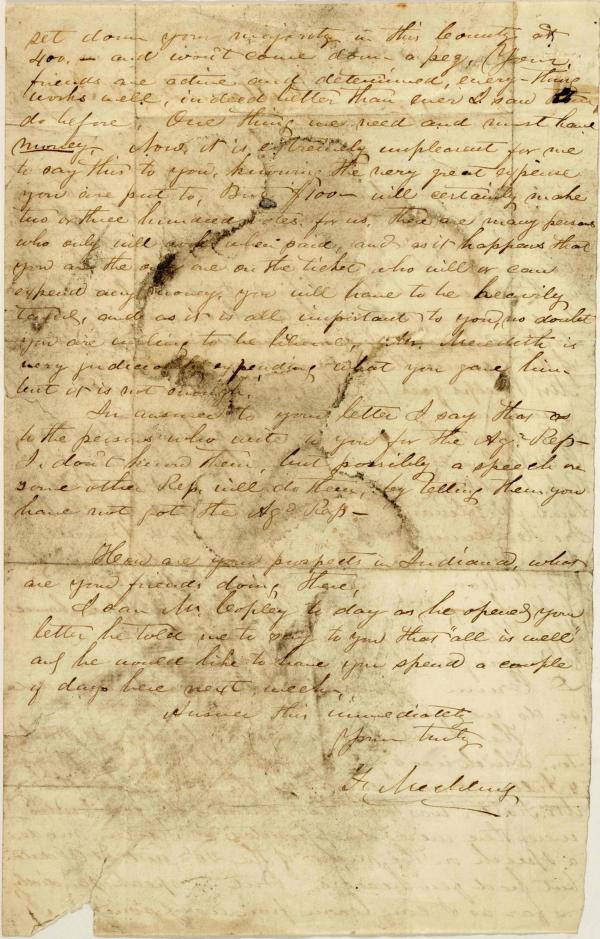 set down your majority in this County at
400. — and won't come down a peg, Your
friends are active and determined, every-thing
works well, indeed better than ever I saw
do before, One thing we need and must have
money, Now, it is extremely unpleasant for me
to say this to you, knowing the very great expense
you are put to, But $100— will certainly make
two or three hundred votes for us, there are many persons
who only will work when paid, and as it happens that
you are the only one on the ticket who will or can
expend any money, you will have to be heavily
taxed, and as it is all important to you, no doubt
you are willing to be liberal, Mr. Meredith is
very judiciously expending what you gave him
but it is not enough.
In answer to your letter I say that as
to the persons who write to you for the Agl Rep—
I don't know them, but possibly a speech or
some other Rep. will do them, by telling them you
have not got the Agl Rep—
How are your prospects in Indiana, what
are your friends doing there,
I saw Mr. Copley to day as he opened your
letter he told me to say to you that "all is well"
and he would like to have you spend a couple
of days here next week,
Answer this immediately
Yours truly